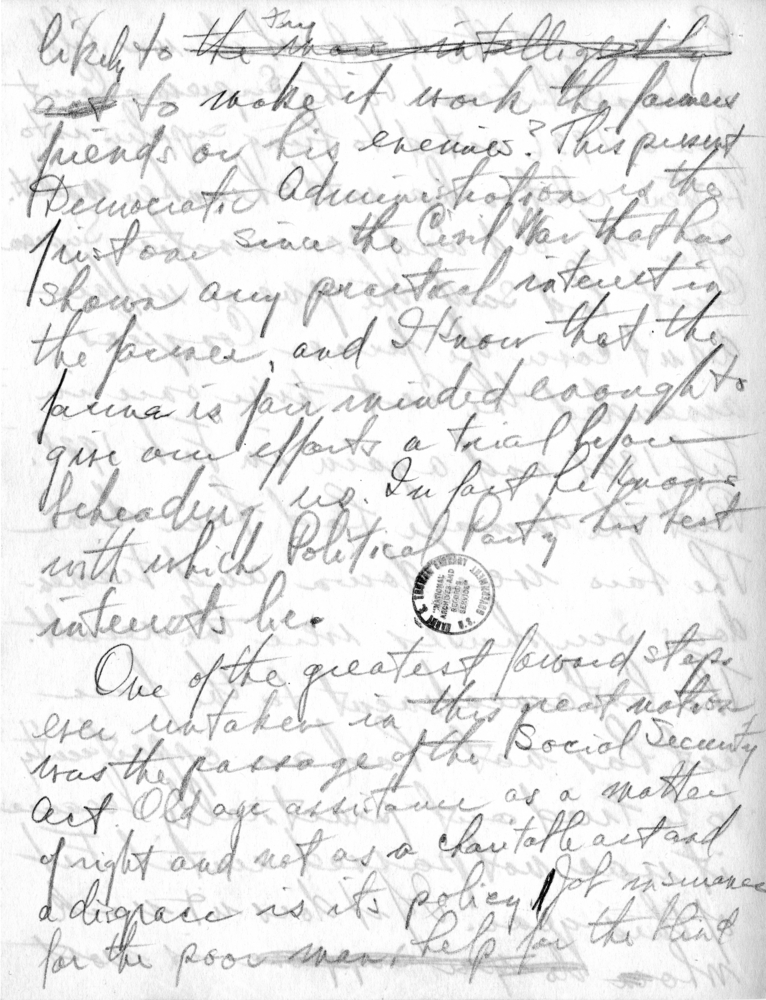 Try
likely to the more intelligently
act to make it work the farmers
friends or his enemies? This present
Democratic Administration is the
first one since the Civil War that has
shown any practical interest in
the farmer, and I know that the
farmer is fair minded enought to
give our efforts a trial before
beheading us. In fact he knows
with which Political Party his best
interests lie.
One of the greatest forward steps
ever untaken in this great nation
was the passage of the Social Security
Act. Old age assistance as a matter
of right and not as a charitable act and
a disgrace is its policy. Job insurance
for the poor man, help for the blind